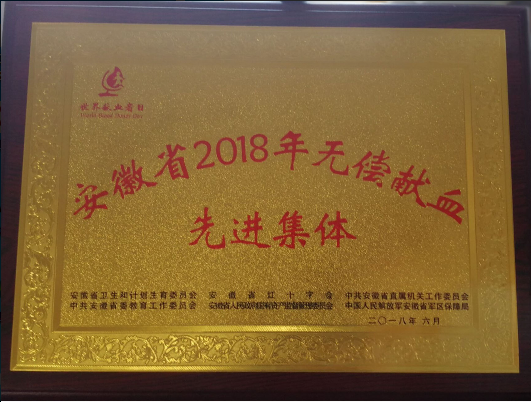 世界献血者日
World Blood Donor Day
安徽省2018年无偿献血
先进集体
安徽省卫生和计划生育委员会 安徽省红十字会 中共安徽省直属机关工作委员会
中共安徽省委教育工作委员会 安徽省人民政府国有资产监督管理委员会 中国人民解放军安徽省军区保障局
二〇一八年六月